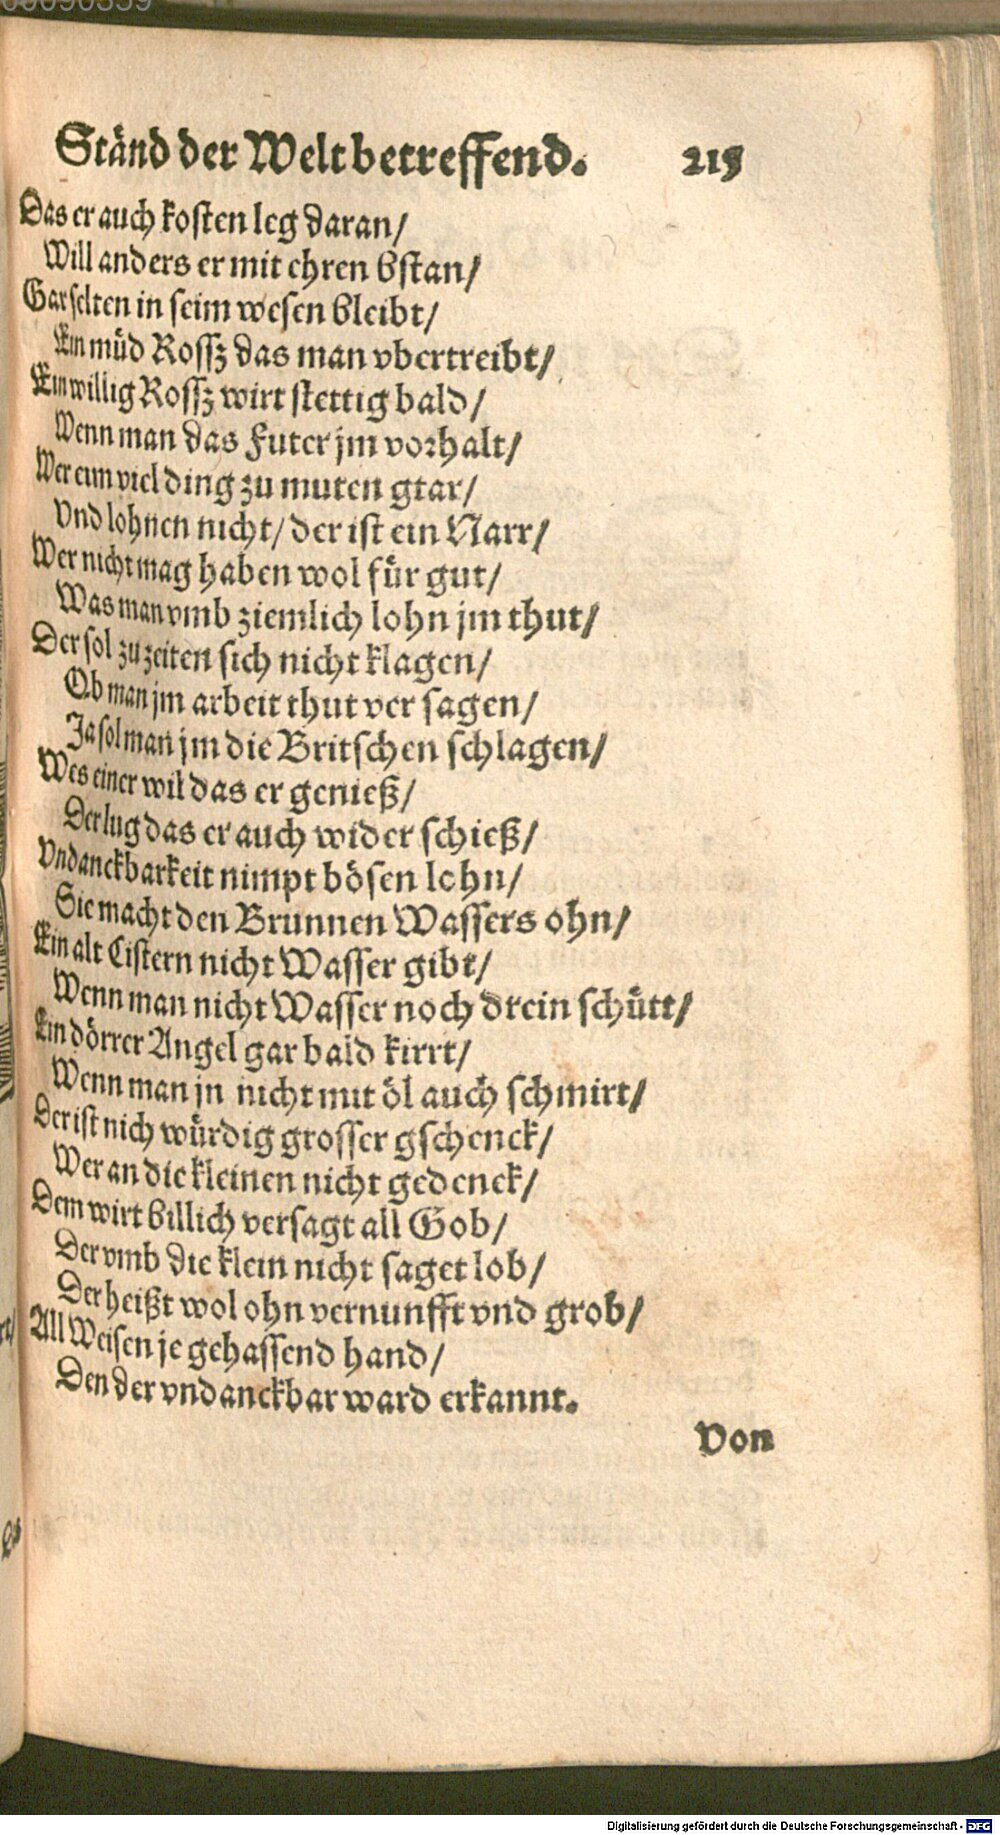 00090359
Ständ der Welt betreffend. 215
Das er auch kosten leg daran/
Will anders er mit ehren bstan/
Gar selten in seim wesen bleibt/
Ein müd Rossz das man vbertreibt/
Ein willig Rossz wirt stettig bald/
Wenn man das Futer jm vorhalt/
Wer eim viel ding zu muten gtar/
Vnd lohnen nicht/ der ist ein Narr/
Wer nicht mag haben wol für gut/
Was man vmb ziemlich lohn jm thut/
Der sol zu zeiten sich nicht klagen/
Ob man jm arbeit thut ver sagen/
Ja sol man jm die Britschen schlagen/
Wes einer wil das er genieß/
Der lug das er auch wider schieß/
Vndanckbarkeit nimpt bösen lohn/
Sie macht den Brunnen Wassers ohn/
Ein alt Cistern nicht Wasser gibt/
Wenn man nicht Wasser noch drein schütt/
Ein dörrer Angel gar bald kirrt/
Wenn man jn nicht mit öl auch schmirt/
Der ist nich würdig grosser gschenck/
Wer an die kleinen nicht gedenck/
Dem wirt billich versagt all Gob/
Der vmb die klein nicht saget lob/
Der heißt wol ohn vernunfft vnd grob/
All Weisen je gehassend hand/
Den der vndanckbar ward erkannt.
Von
Digitalisierung gefördert durch die Deutsche Forschungsgemeinschaft - DFG